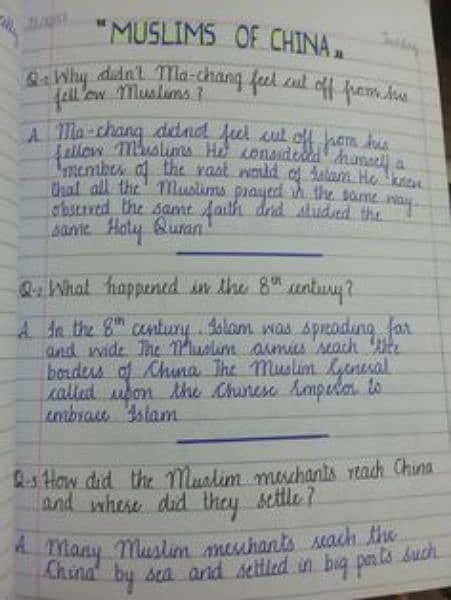 "MUSLIMS OF CHINA"
Q-1 Why didn't Ma-chang feel cut off from his
fellow Muslims?
A Ma-chang didnot feel cut off from his
fellow Muslims He considered himself a
member of the vast world of Islam. He knew
that all the Muslims prayed in the same way.
observed the same faith and studied the
same Holy Quran
Q-2 What happened in the 8th century?
A In the 8th century. Islam was spreading far
and wide The Muslim armies reach the
borders of China The Muslim General
called upon the Chinese Emperor to
embrace Islam
Q-3 How did the Muslim merchants reach China
and where did they settle?
A Many Muslim merchants reach the
China by sea and settled in big ports such